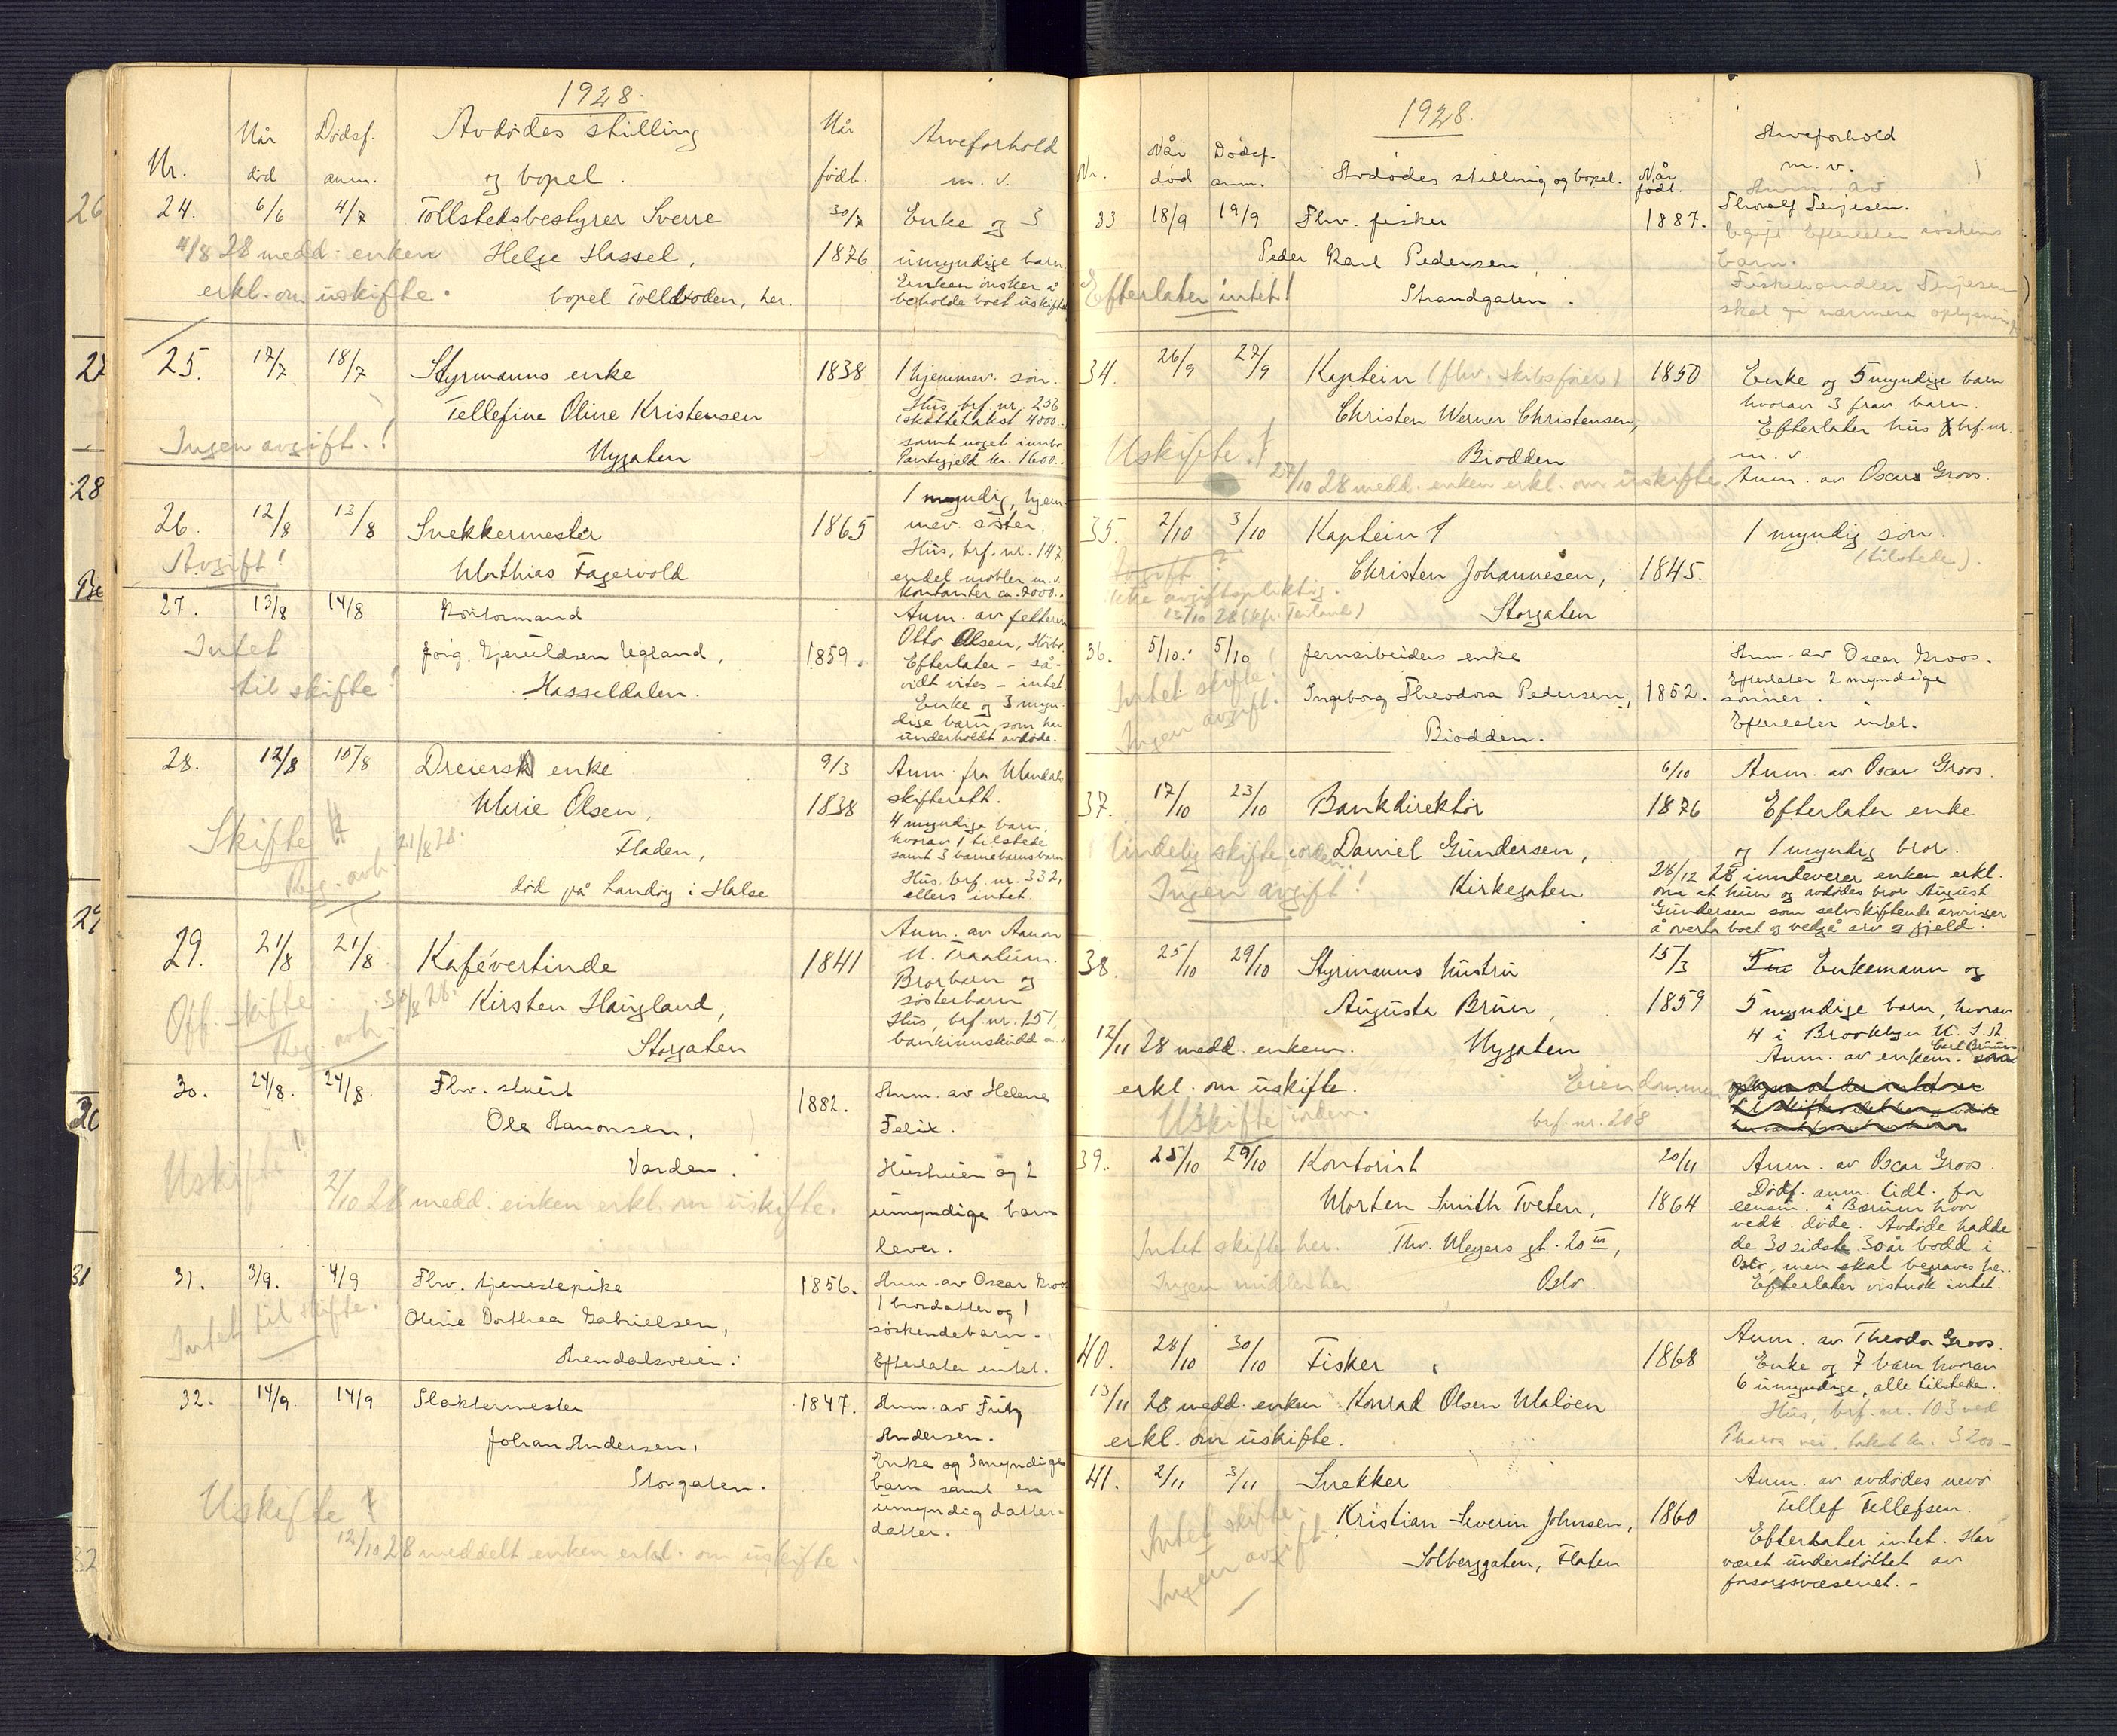 1928.
Nr.
Når død
Dødsf. anm.
Avdødes stilling og bopel.
Når født.
Arveforhold m. v.
24. 6/6 4/7 Tollstedsbestyrer Sverre 30/7 Enke og 3
4/8 28 medd. enken Helge Hassel, 1876 umyndige barn.
erkl. om uskifte. bopel Tollboden, her.
Enken ønsker å
beholde boet uskifte
25. 17/7 18/7 Styrmanns enke 1838 1 hjemmev. søn.
Tellefine Oline Kristensen
Nygaten
Ingen avgift.!
Hus brf. nr. 256
(skattetakst 4000.
samt noget innbo
Pantegjeld kr. 1600..
26. 12/8 13/8 Snekkermester 1865
Mathias Fagervold
Avgift!
1 myndig, hjem-
mev. søster.
Hus, brf. nr. 147,
endel møbler m.v.
Kontanter ca. 2000..
27. 13/8 14/8
Jørg. Gjeruldsen Ugland, 1859.
Hasseldalen.
Intet
til skifte!
Anm. av fetteren
Otto Olsen,
Efterlater - så-
vidt vites - intet.
Enke og 3 myn-
dige barn, som har
underholdt avdøde.
28. 12/8 15/8 Dreiers enke 9/3
Marie Olsen, 1838
Fladen,
død på Landøy i Halse
Skifte
21/8 28.
Reg. avh.
Anm. fra Mandals
skifterett.
4 myndige barn,
hvorav 1 tilstede
samt 3 barnebarnsbarn
Hus, brf. nr. 332,
ellers intet.
29. 21/8 21/8 Kafévertinde 1841
Kirsten Haugland,
Storgaten
Off. skifte
Reg. avh.
Anm. av Aanon
N. Traalum.
Brorbarn og
søsterbarn
Hus, brf. nr. 151,
bankinnskudd
30. 24/8. 24/8. Fhv. stuert 1882.
Ole Aanonsen,
Varden.
Uskifte!
2/10 28 medd. enken erkl. om uskifte.
Anm. av Helene
Felix.
Hustruen og 2
umyndige barn
lever.
31. 3/9. 4/9 Fhv. tjenestepike 1856.
Oline Dorthea Gabrielsen,
Arendalsveien.
Intet til skifte.
Anm. av Oscar Groos
1 brordatter og 1
søskendebarn.
Efterlater intet.
32. 14/9. 14/9 Slaktermester 1847.
Johan Andersen,
Storgaten.
Uskifte!
12/10 28 meddelt enken erkl. om uskifte.
Anm. av Fritz
Andersen.
Enke og 3 myndige
barn samt en
umyndig datter-
datter.
1928.
Nr.
Når død
Dødsf. anm.
Avdødes stilling og bopel.
Når født.
Arveforhold m. v.
33 18/9 19/9 Fhv. fisker 1887.
Peder Karl Pedersen,
Strandgaten.
Efterlater intet!
Anm. av
Thoralf Terjesen.
Efterlater
barn.
Fiskehandler Terjesen
skal gi nærmere oplysning
34. 26/9 27/9 Kaptein (fhv. skibsfører) 1850
Christen Werner Christensen,
Biodden
Uskifte!
27/10 28 medd. enken erkl. om uskifte
Enke og 5 myndige barn
hvorav 3 frav. barn.
Efterlater hus brf. nr.
m. v.
Anm. av Oscar Groos.
35. 2/10 3/10 Kaptein
Christen Johannesen, 1845.
Storgaten
Avgift ?
Ikke avgiftspliktig.
1 myndig søn.
(tilstede).
36. 5/10. 5/10 Jernarbeiders enke
Ingeborg Theodora Pedersen, 1852.
Biodden.
Intet skifte.
Ingen avgift.
Anm. av Oscar Groos.
Efterlater 2 myndige
sønner.
Efterlater intet.
37. 17/10 23/10 Bankdirektør 6/10 1876
Daniel Gundersen,
Kirkegaten
Ingen avgift!
Anm. av Oscar Groos.
Efterlater enke
og 1 myndig bror.
28/12 28 innleverer enken erkl.
om at hun og avdødes bror August
Gundersen som selvskiftende arvinger
å overta boet og vedgå arv og gjeld.
38. 25/10 29/10 Styrmanns hustru 15/3
Augusta Bruun, 1859
Nygaten
12/11 28 medd. enkem.
erkl. om uskifte.
Uskifte i orden.
Eiendommen
brf. nr. 208
Enkemann og
5 myndige barn, hvorav
4 i Brooklyn U. S. A.
Anm. av enkem. Carl Bruun
39. 25/10 29/10 Kontorist 20/11
Morten Smith Tveten, 1864
Thv. Meyers gt. 20 III,
Oslo.
Intet skifte her.
Ingen midler her
Anm. av Oscar Groos.
Dødf. anm. tidl. for
lensm. i Bærum hvor
vedk. døde. Avdøde hadde
de 30 sidste 30 år bodd i
Oslo, men skal begraves her.
Efterlater vistnok intet.
40. 28/10 30/10 Fisker 1868
13/11 28 medd. enken Konrad Olsen Maløen
erkl. om uskifte.
Anm. av Theodor Groos.
Enke og 7 barn hvorav
6 umyndige, alle tilstede.
Hus, brf. nr. 103 ved
Pharos vei, takst kr. 3200.-
41. 2/11 3/11 Snekker
Kristian Severin Johnsen, 1860
Solberggaten, Flaten
Intet skifte.
Ingen avgift
Anm. av avdødes nevø
Tellef Tellefsen.
Efterlater intet. Har
været understøttet av
forsorgsvæsenet. -